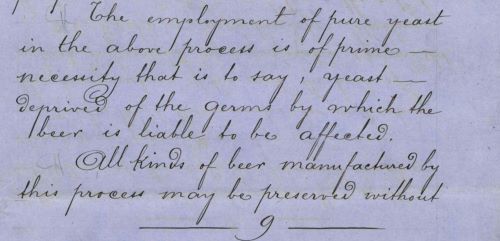 The employment of pure yeast
in the above process is of prime —
necessity that is to say, yeast —
deprived of the germs by which the
beer is liable to be affected.
All kinds of beer manufactured by
this process may be preserved without
9